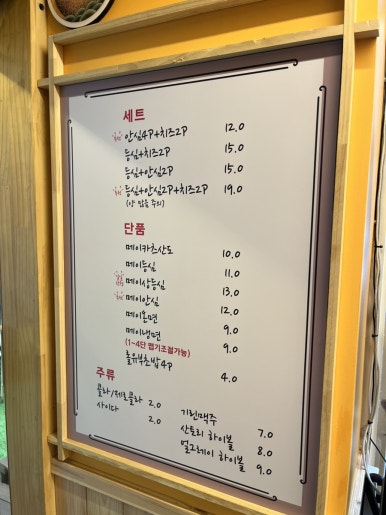 세트
안심4P+치즈2P 12.0
등심+치즈2P 15.0
등심+안심2P 15.0
등심+안심2P+치즈2P 19.0
(양 많음 주의)
단품
메이카츠산도 10.0
메이등심 11.0
메이상등심 13.0
메이안심 12.0
메이온면 9.0
메이냉면 9.0
(1~4단 맵기조절가능)
롤유부초밥4P 4.0
주류
콜라/제로콜라 2.0
사이다 2.0
기린맥주 7.0
산토리 하이볼 8.0
얼그레이 하이볼 9.0